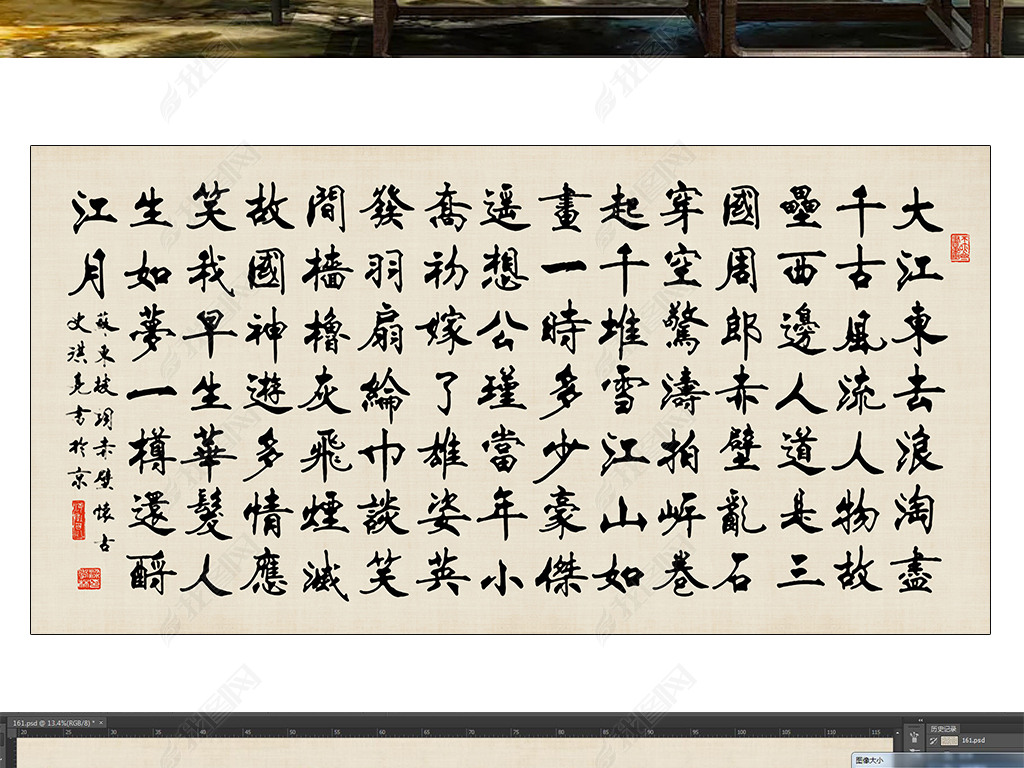 大江東去浪淘盡
千古風流人物故
壘西邊人道是三
國周郎赤壁亂石
穿空驚濤拍岸卷
起千堆雪江山如
畫一時多少豪傑
遥想公瑾當年小
喬初嫁了雄姿英
發羽扇綸巾談笑
間檣櫓灰飛煙滅
故國神遊多情應
笑我早生華髮人
生如夢一樽還酹
江月
蘇東坡詞赤壁懷古
史淇亮書於京
161.psd @ 13.4%(RGB/8) * ×
20 25 30 35 40 45 50 55 60 65 70 75 80 85 90 95 100 105 110 115
历史记录
161.psd
图像大小